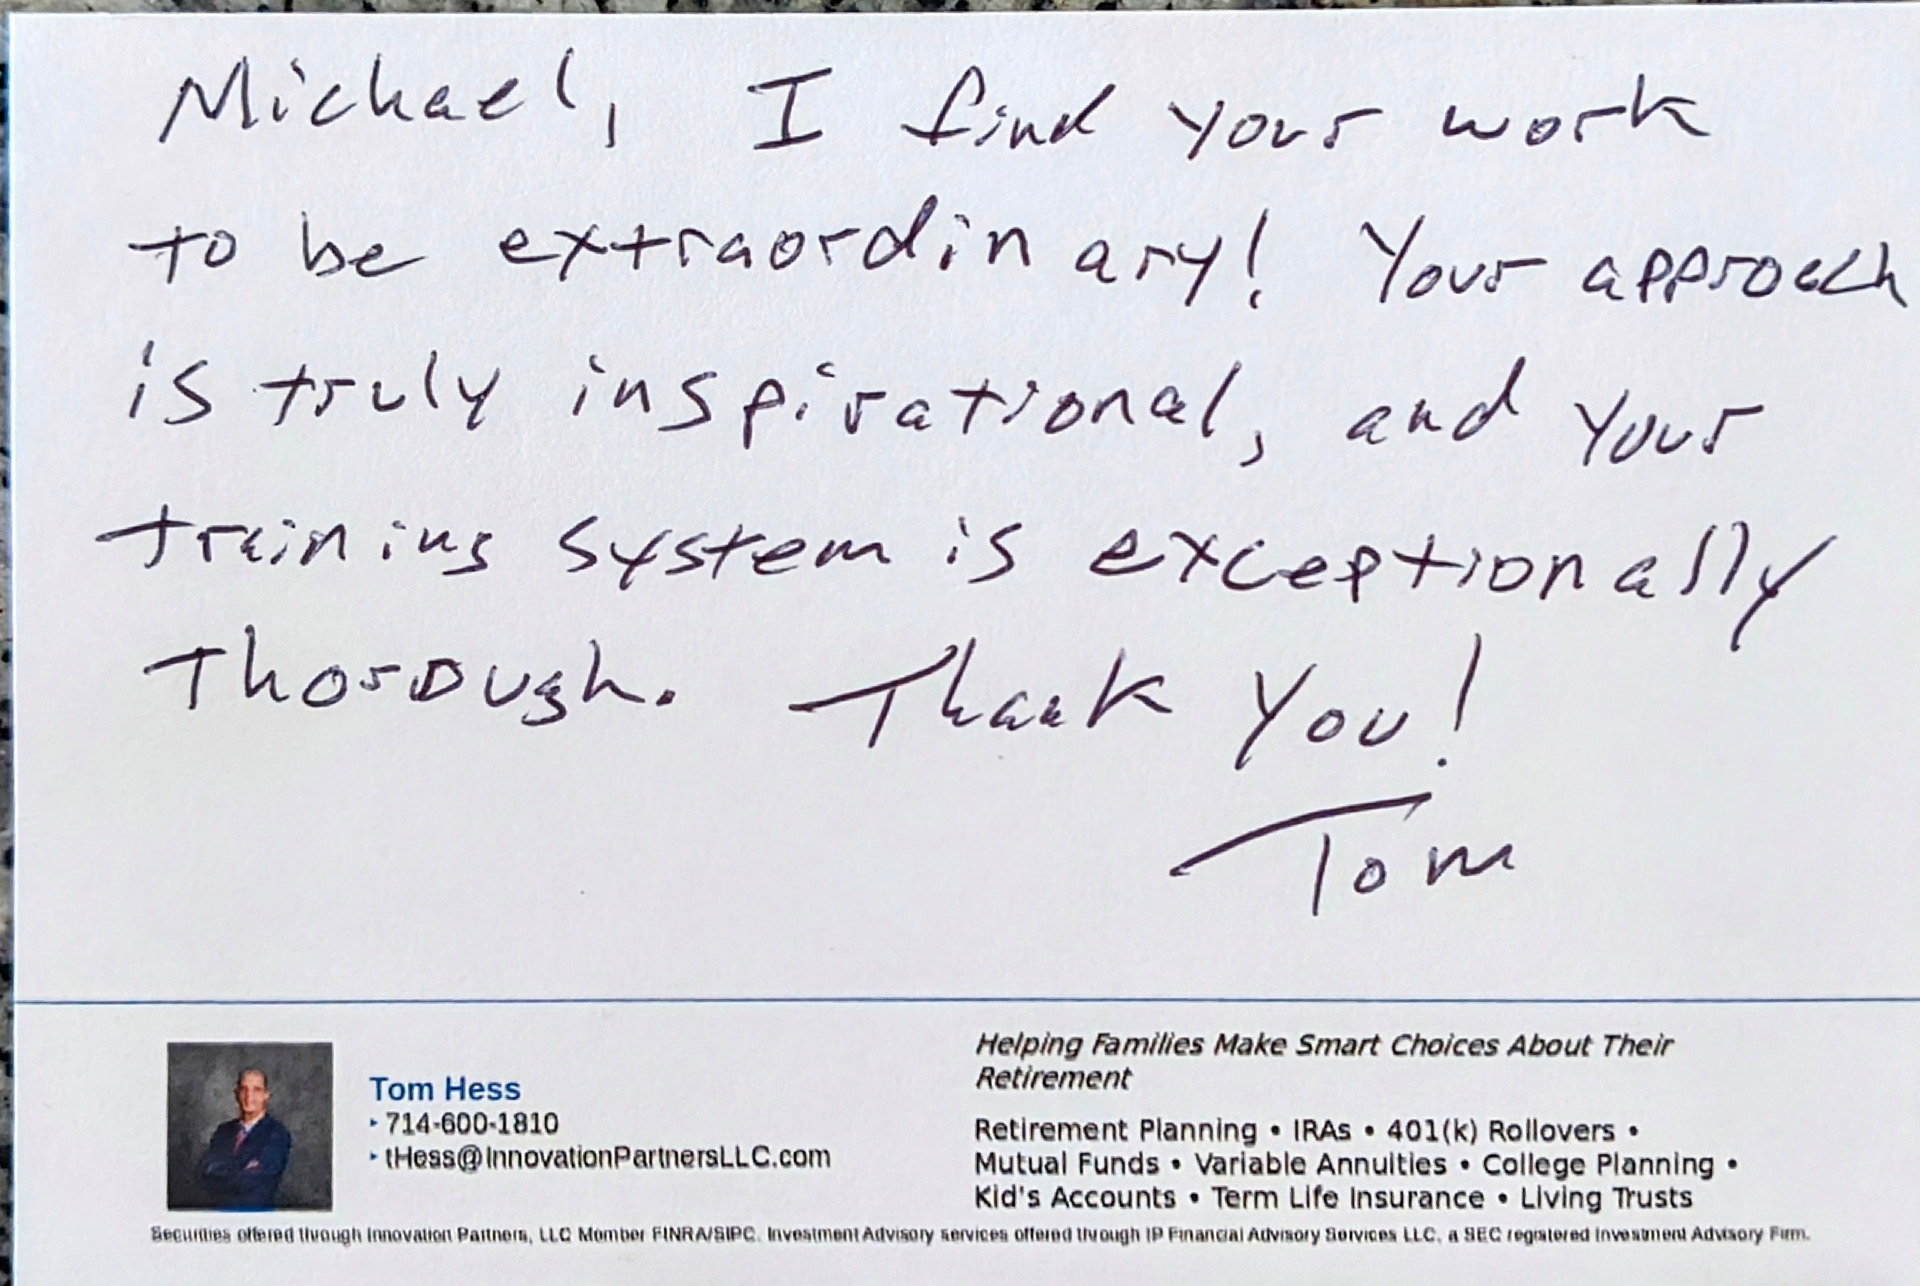 Michael, I find your work
to be extraordinary! Your approach
is truly inspirational, and your
training system is exceptionally
thorough. Thank you!
Tom
Tom Hess
‣ 714-600-1810
‣ tHess@InnovationPartnersLLC.com
Helping Families Make Smart Choices About Their
Retirement
Retirement Planning • IRAs • 401(k) Rollovers •
Mutual Funds • Variable Annuities • College Planning •
Kid's Accounts • Term Life Insurance • Living Trusts
Securities offered through Innovation Partners, LLC Member FINRA/SIPC. Investment Advisory services offered through IP Financial Advisory Services LLC, a SEC registered Investment Advisory Firm.